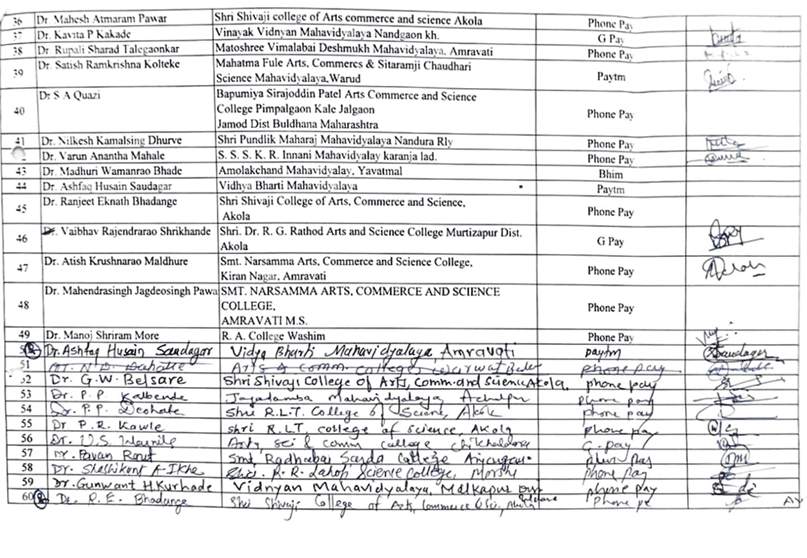 36 Dr. Mahesh Atmaram Pawar Shri Shivaji college of Arts commerce and science Akola Phone Pay
37 Dr. Kavita P Kakade Vinayak Vidnyan Mahavidyalaya Nandgaon kh. G Pay
38 Dr. Rupali Sharad Talegaonkar Matoshree Vimalabai Deshmukh Mahavidyalaya, Amravati Phone Pay
39 Dr. Satish Ramkrishna Kolteke Mahatma Fule Arts, Commercs & Sitaramji Chaudhari
Science Mahavidyalaya,Warud Paytm
40 Dr S A Quazi Bapumiya Sirajoddin Patel Arts Commerce and Science
College Pimpalgaon Kale Jalgaon
Jamod Dist Buldhana Maharashtra Phone Pay
41 Dr. Nilkesh Kamalsing Dhurve Shri Pundlik Maharaj Mahavidyalaya Nandura Rly Phone Pay
Dr. Varun Anantha Mahale S. S. S. K. R. Innani Mahavidyalay karanja lad. Phone Pay
43 Dr. Madhuri Wamanrao Bhade Amolakchand Mahavidyalay, Yavatmal Bhim
44 Dr. Ashfaq Husain Saudagar Vidhya Bharti Mahavidyalaya Paytm
45 Dr. Ranjeet Eknath Bhadange Shri Shivaji College of Arts, Commerce and Science,
Akola Phone Pay
46 Dr. Vaibhav Rajendrarao Shrikhande Shri. Dr. R. G. Rathod Arts and Science College Murtizapur Dist.
Akola G Pay
47 Dr. Atish Krushnarao Maldhure Smt. Narsamma Arts, Commerce and Science College,
Kiran Nagar, Amravati Phone Pay
48 Dr. Mahendrasingh Jagdeosingh Pawa SMT. NARSAMMA ARTS, COMMERCE AND SCIENCE
COLLEGE,
AMRAVATI M.S. Phone Pay
49 Dr. Manoj Shriram More R. A. College Washim Phone Pay
Dr. Ashfaq Husain Saudagar Vidya Bharti Mahavidyalaya, Amravati paytm Saudagar
51 Arts & Comm College phone pay
52 Dr. G.W. Belsare Shri Shivaji College of Arts, Comm and Science Akola, phone pay
53 Dr. P. P Kalbende Jagadamba Mahavidyalaya Achalpur phone pay
54 Dr. P.P. Deohate Shri R.L.T. College of Science, Akola phone pay
55 Dr P.R. Kawle shri R.L.T. college of science, Akola phone pay
56 Dr. U.S. Arts sci & comm college chikhaldara G. pay
57 Pavan Raut Smt Radhabai Sarda College Anjangaon phone pay
58 Dr. Shashikant A. Ikhe Shri. R. R. Lahoti Science College, Morshi phone pay
59 Dr. Gunwant H. Kurhade Vidnyan Mahavidyalaya, Malkapur phone pay
60 Dr. R. E. Bhadange Shri Shivaji College of Arts, Commerce & Sci, Akola phone pe